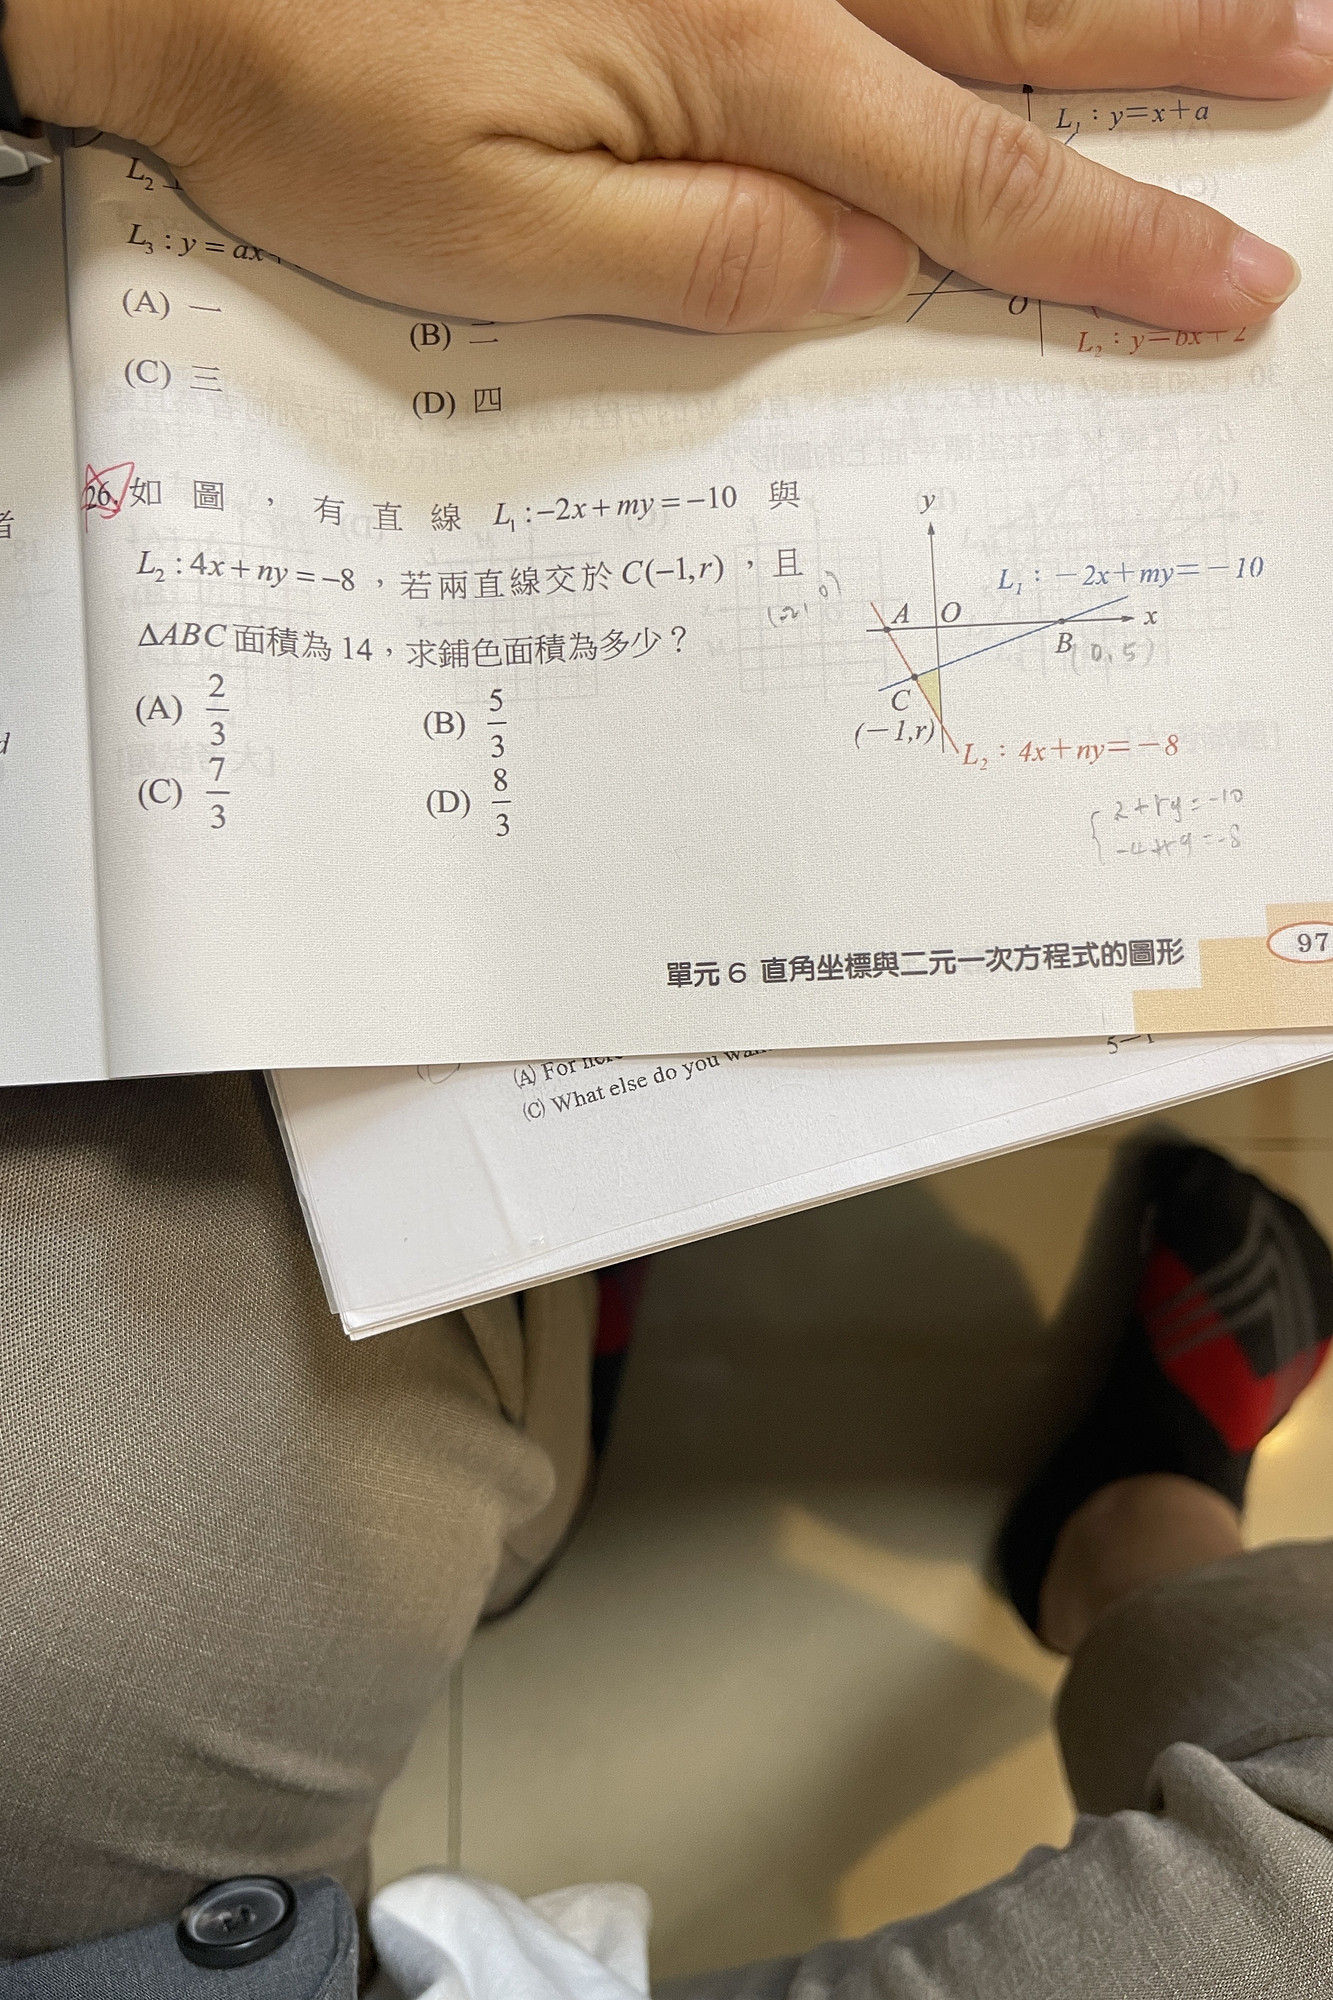 L₁：y=x+a
L₂
L₃ : y = ax
(A) 一
(B) 二
(C) 三
(D) 四
O
L₂：y=bx+2
26. 如圖，有直線 L₁ : −2x + my = −10 與
L₂ : 4x + ny = −8，若兩直線交於 C(−1, r)，且
ΔABC 面積為 14，求鋪色面積為多少？
(A) 2/3
(B) 5/3
(C) 7/3
(D) 8/3
y
L₁：−2x+my=−10
A
O
x
B
C
(−1,r)
L₂：4x+ny=−8
(0, 5)
單元 6 直角坐標與二元一次方程式的圖形
97
(A) For here
(C) What else do you